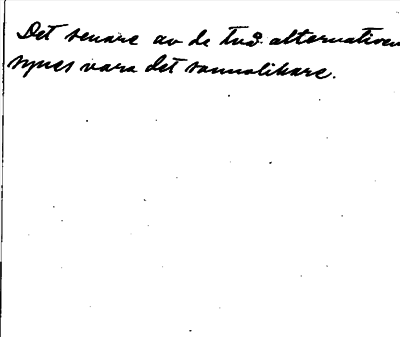 Det senare av de två alternativen
synes vara det sannolikare.